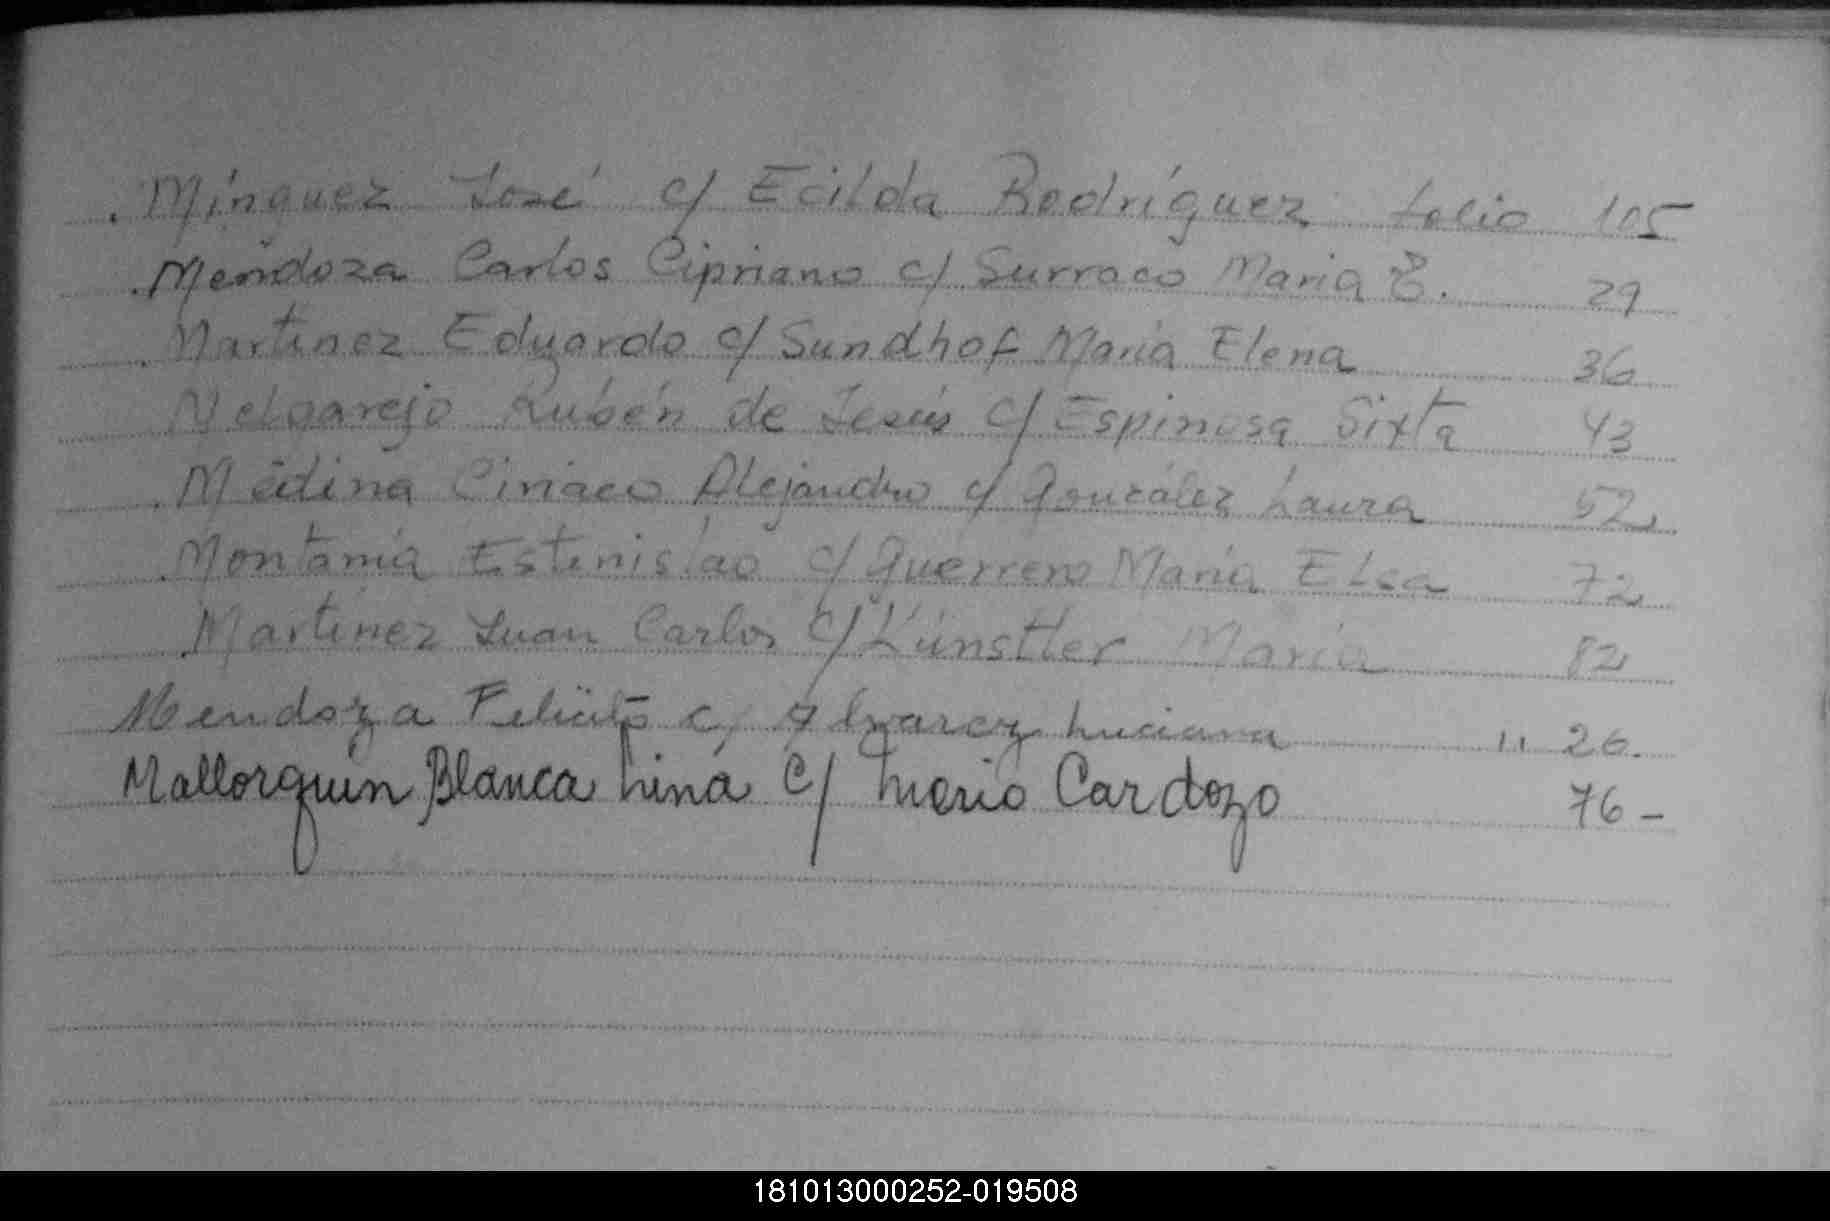 . Mínguez José c/ Ecilda Rodríguez folio 105
. Mendoza Carlos Cipriano c/ Surraco Maria E. 29
. Martinez Eduardo c/ Sundhof María Elena 36
Melgarejo Rubén de Jesús c/ Espinosa Sixta 43
. Medina Ciriaco Alejandro c/ González Laura 52
. Montania Estinislao c/ Guerrero María Elsa 72
. Martinez Juan Carlos c/ Künstler María 82
Mendoza Felicito c/ Alvarez Luciana " 26.
Mallorquin Blanca Lina c/ Cardozo 76 -
181013000252-019508